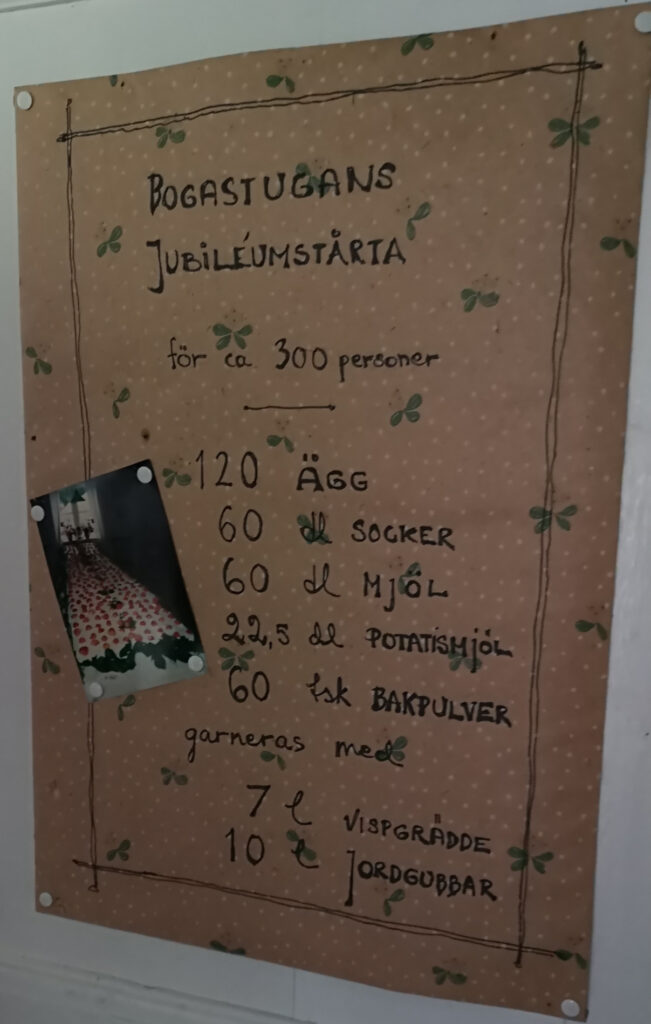 BOGASTUGANS
JUBILÉUMSTÅRTA
för ca 300 personer
120 ÄGG
60 dl SOCKER
60 dl MJÖL
22,5 dl POTATISMJÖL
60 tsk BAKPULVER
garneras med
7 l VISPGRÄDDE
10 l JORDGUBBAR